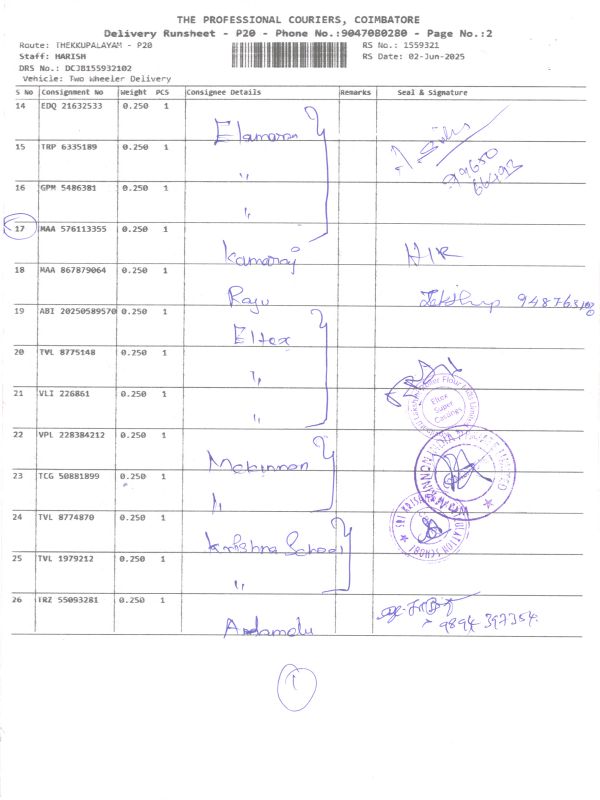 THE PROFESSIONAL COURIERS, COIMBATORE
Delivery Runsheet - P20 - Phone No.:9047080280 - Page No.:2
Route: THEKKUPALAYAM - P20 RS No.: 1559321
Staff: HARISH RS Date: 02-Jun-2025
DRS No.: DCJB155932102
Vehicle: Two Wheeler Delivery
S No Consignment No Weight PCS Consignee Details Remarks Seal & Signature
14 EDQ 21632533 0.250 1
Elamaran
15 TRP 6335189 0.250 1
"
99650
66493
16 GPM 5486381 0.250 1
"
17 MAA 576113355 0.250 1
Kamaraj HIR
18 MAA 867879064 0.250 1
Raju
19 ABI 20250589570 0.250 1
Eltex
20 TVL 8775148 0.250 1
"
21 VLI 226861 0.250 1
"
Eltex
Super
Castings
22 VPL 228384212 0.250 1
Mckinnon
23 TCG 50881899 0.250 1
"
24 TVL 8774870 0.250 1
Krishna School
25 TVL 1979212 0.250 1
"
26 IRZ 55093281 0.250 1
9894 397354
1